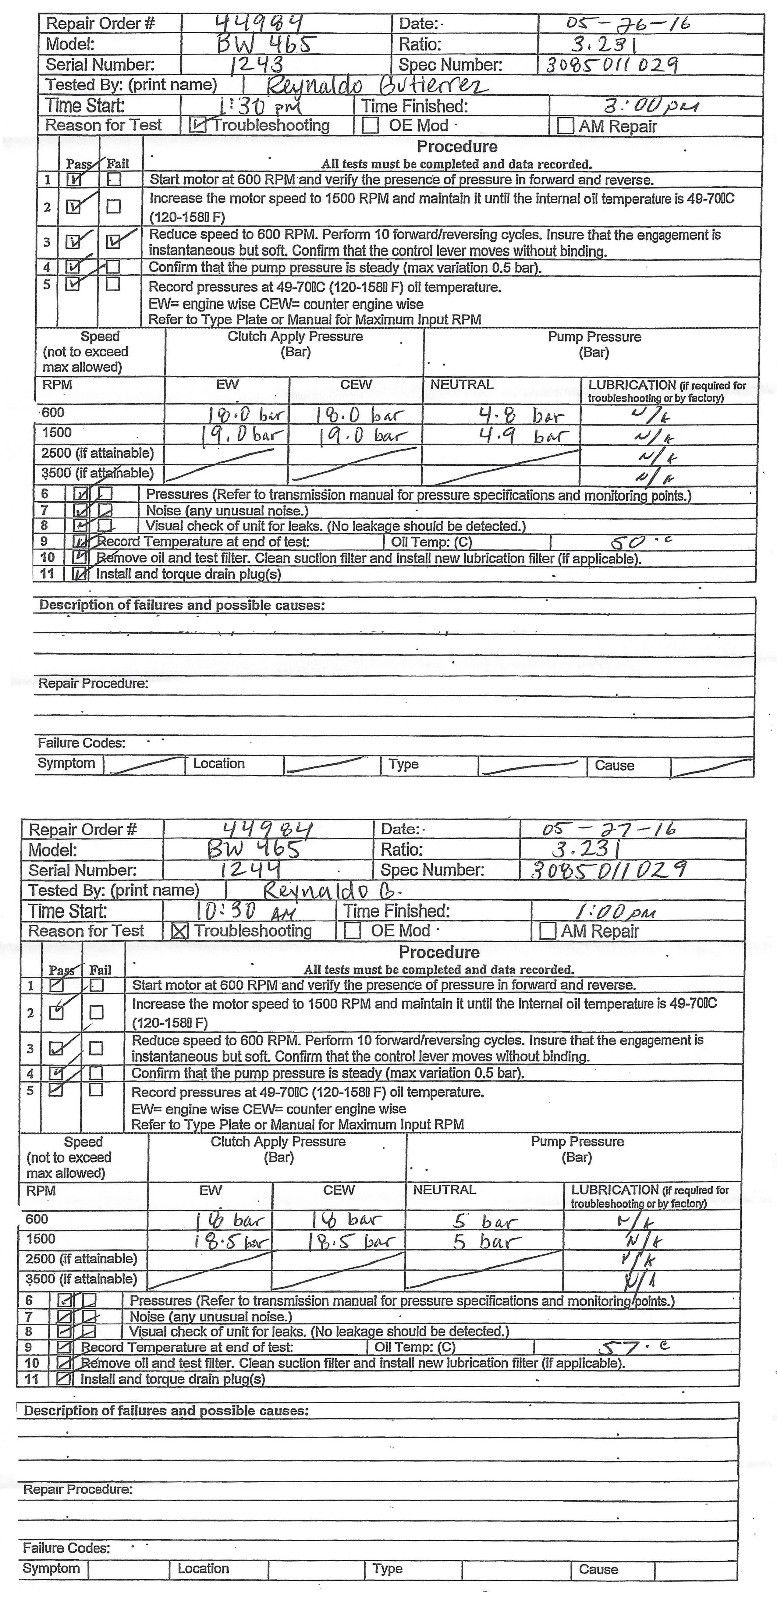 Repair Order # 44984 Date: 05-26-16
Model: BW 465 Ratio: 3.231
Serial Number: 1243 Spec Number: 3085011029
Tested By: (print name) Reynaldo Gutierrez
Time Start: 1:30 pm Time Finished: 3:00 pm
Reason for Test Troubleshooting OE Mod AM Repair
Procedure
Pass Fail All tests must be completed and data recorded.
1 Start motor at 600 RPM and verify the presence of pressure in forward and reverse.
2 Increase the motor speed to 1500 RPM and maintain it until the internal oil temperature is 49-70▯C
(120-158▯ F)
3 Reduce speed to 600 RPM. Perform 10 forward/reversing cycles. Insure that the engagement is
instantaneous but soft. Confirm that the control lever moves without binding.
4 Confirm that the pump pressure is steady (max variation 0.5 bar).
5 Record pressures at 49-70▯C (120-158▯ F) oil temperature.
EW= engine wise CEW= counter engine wise
Refer to Type Plate or Manual for Maximum Input RPM
Speed Clutch Apply Pressure Pump Pressure
(not to exceed (Bar) (Bar)
max allowed)
RPM EW CEW NEUTRAL LUBRICATION (if required for
troubleshooting or by factory)
600 18.0 bar 18.0 bar 4.8 bar N/A
1500 19.0 bar 19.0 bar 4.9 bar N/A
2500 (if attainable) N/A
3500 (if attainable) N/A
6 Pressures (Refer to transmission manual for pressure specifications and monitoring points.)
7 Noise (any unusual noise.)
8 Visual check of unit for leaks. (No leakage should be detected.)
9 Record Temperature at end of test: Oil Temp: (C) 50°c
10 Remove oil and test filter. Clean suction filter and install new lubrication filter (if applicable).
11 Install and torque drain plug(s)
Description of failures and possible causes:
Repair Procedure:
Failure Codes:
Symptom Location Type Cause
Repair Order # 44984 Date: 05-27-16
Model: BW 465 Ratio: 3.231
Serial Number: 1244 Spec Number: 3085011029
Tested By: (print name) Reynaldo G.
Time Start: 10:30 AM Time Finished: 1:00 pm
Reason for Test Troubleshooting OE Mod AM Repair
Procedure
Pass Fail All tests must be completed and data recorded.
1 Start motor at 600 RPM and verify the presence of pressure in forward and reverse.
2 Increase the motor speed to 1500 RPM and maintain it until the internal oil temperature is 49-70▯C
(120-158▯ F)
3 Reduce speed to 600 RPM. Perform 10 forward/reversing cycles. Insure that the engagement is
instantaneous but soft. Confirm that the control lever moves without binding.
4 Confirm that the pump pressure is steady (max variation 0.5 bar).
5 Record pressures at 49-70▯C (120-158▯ F) oil temperature.
EW= engine wise CEW= counter engine wise
Refer to Type Plate or Manual for Maximum Input RPM
Speed Clutch Apply Pressure Pump Pressure
(not to exceed (Bar) (Bar)
max allowed)
RPM EW CEW NEUTRAL LUBRICATION (if required for
troubleshooting or by factory)
600 18 bar 18 bar 5 bar N/A
1500 18.5 bar 18.5 bar 5 bar N/A
2500 (if attainable) N/A
3500 (if attainable) N/A
6 Pressures (Refer to transmission manual for pressure specifications and monitoring points.)
7 Noise (any unusual noise.)
8 Visual check of unit for leaks. (No leakage should be detected.)
9 Record Temperature at end of test: Oil Temp: (C) 57°c
10 Remove oil and test filter. Clean suction filter and install new lubrication filter (if applicable).
11 Install and torque drain plug(s)
Description of failures and possible causes:
Repair Procedure:
Failure Codes:
Symptom Location Type Cause